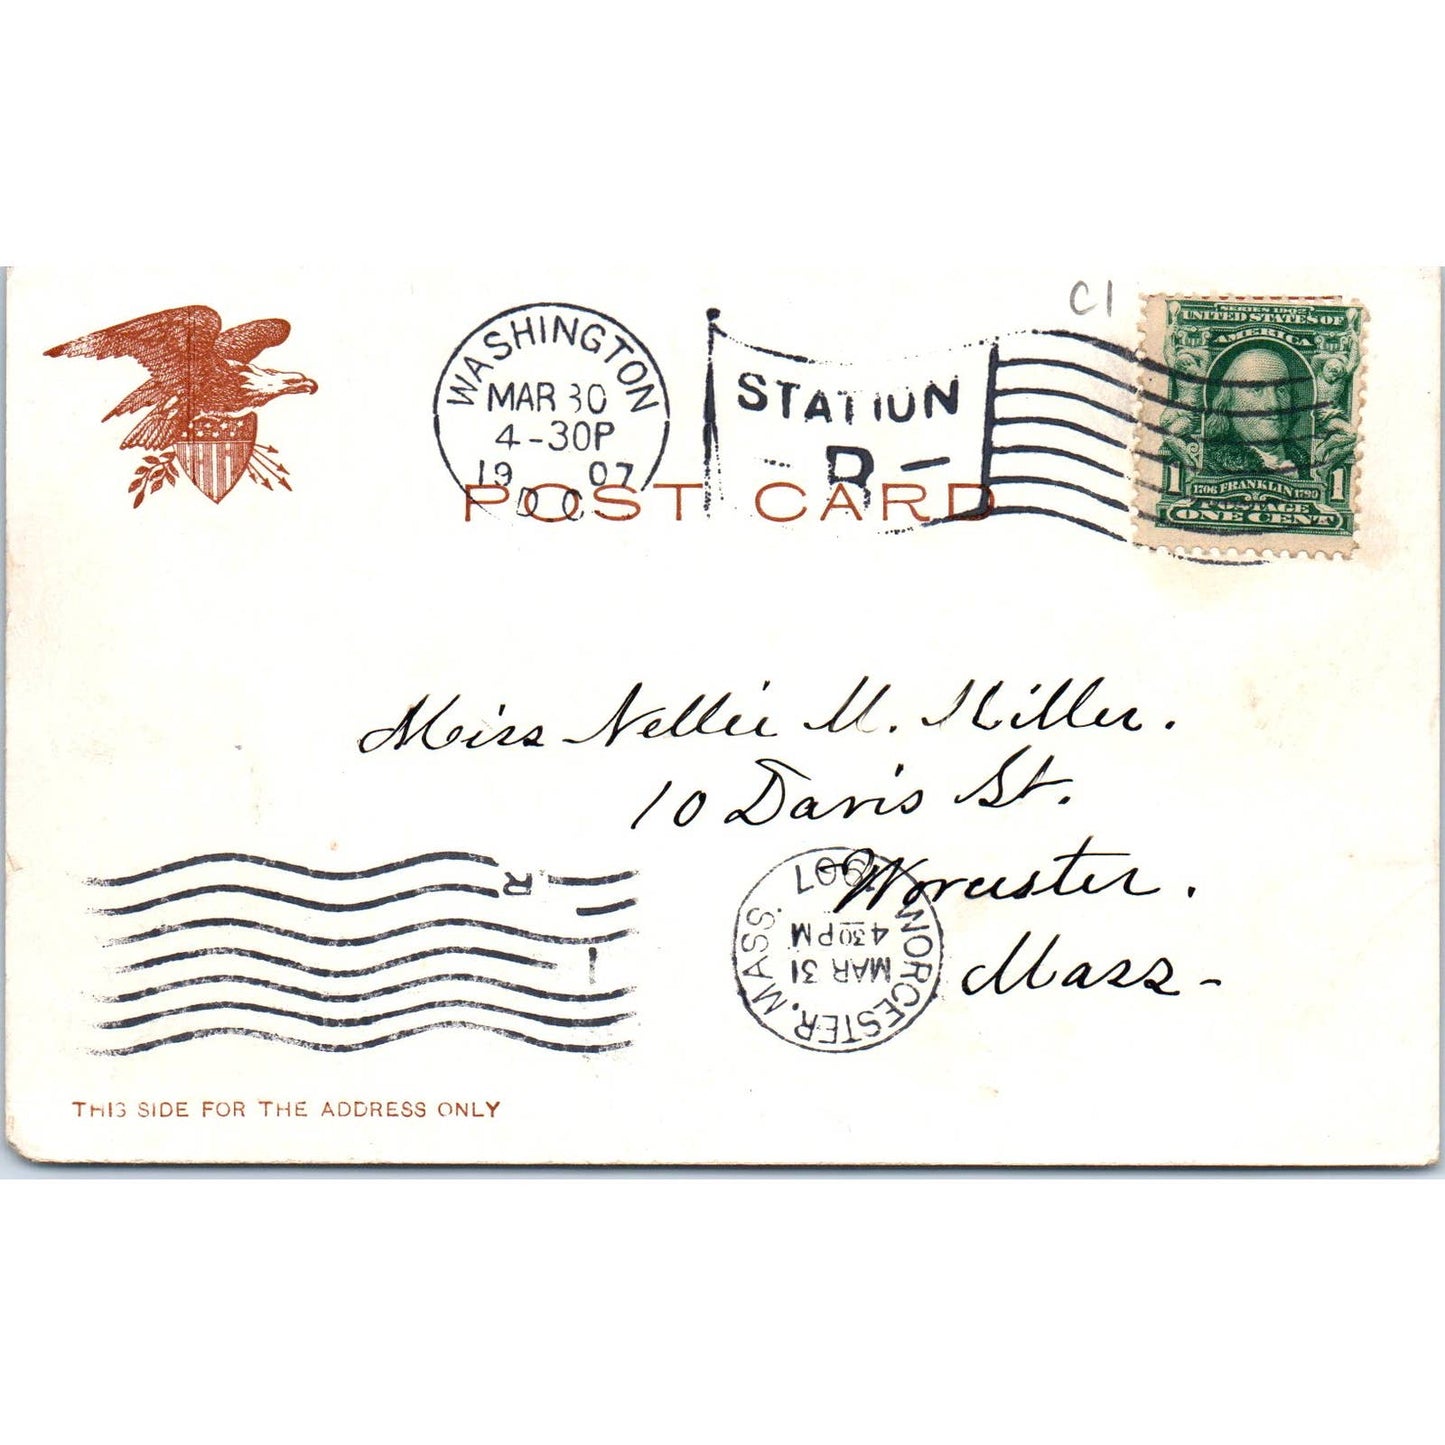 C1
WASHINGTON
MAR 30
4-30P
19 07
D C
STATION
POST CARD
SERIES 1902
UNITED STATES OF
AMERICA
1 1
1706 FRANKLIN 1790
POSTAGE
ONE CENT
Miss Nellie M. Miller.
10 Davis St.
Worcester.
Mass-
WORCESTER, MASS.
MAR 31
4 30 PM
1907
R
1
THIS SIDE FOR THE ADDRESS ONLY